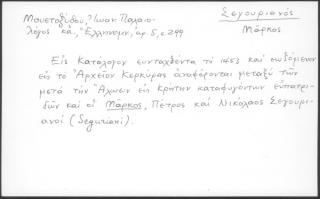 Μουστοξύδου, Ἰωάν. Παλαιο-
λόγος κλ., "Ἑλληνομν., ἀρ. 5, σ. 299
Σεγουριανός
Μάρκος
Εἰς Κατάλογον συνταχθέντα τὸ 1453 καὶ σωζόμενον
εἰς τὸ Ἀρχεῖον Κερκύρας ἀναφέρονται μεταξὺ τῶν
μετὰ τὴν Ἅλωσιν εἰς Κρήτην καταφυγόντων εὐπατρι-
δῶν καὶ οἱ Μάρκος, Πέτρος καὶ Νικόλαος Σεγουρι-
ανοί (Seguriani).